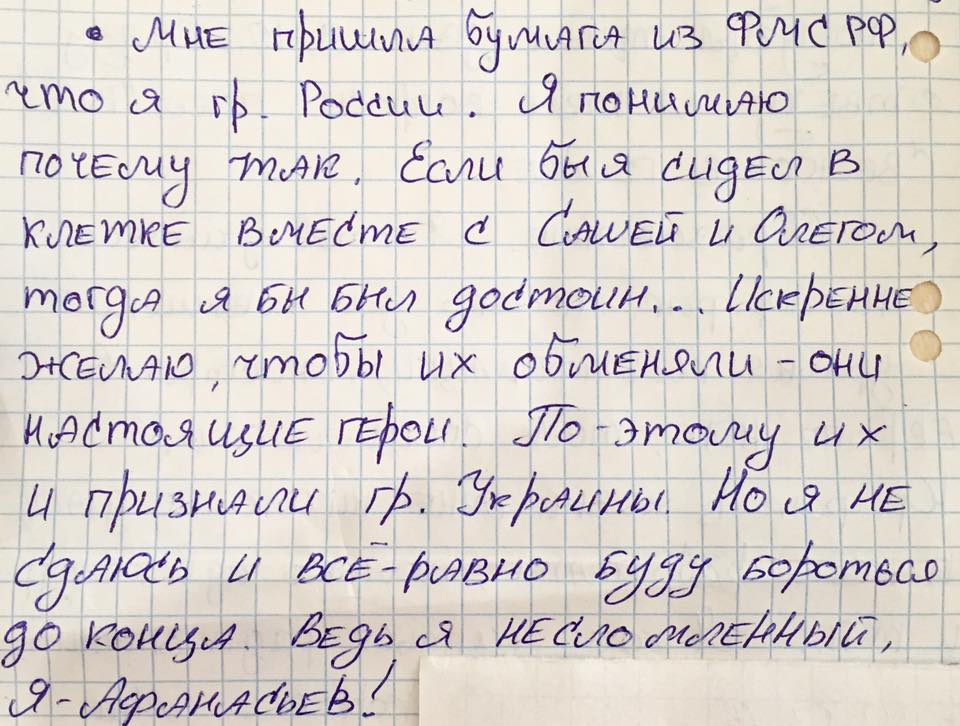 • Мне пришла бумага из ФМС РФ,
что я гр. России. Я понимаю
почему так. Если бы я сидел в
клетке вместе с Сашей и Олегом,
тогда я бы был достоин... Искренне
желаю, чтобы их обменяли - они
настоящие герои. По-этому их
и признали гр. Украины. Но я не
сдаюсь и всё-равно буду бороться
до конца. Ведь я несломленный,
Я - Афанасьев!